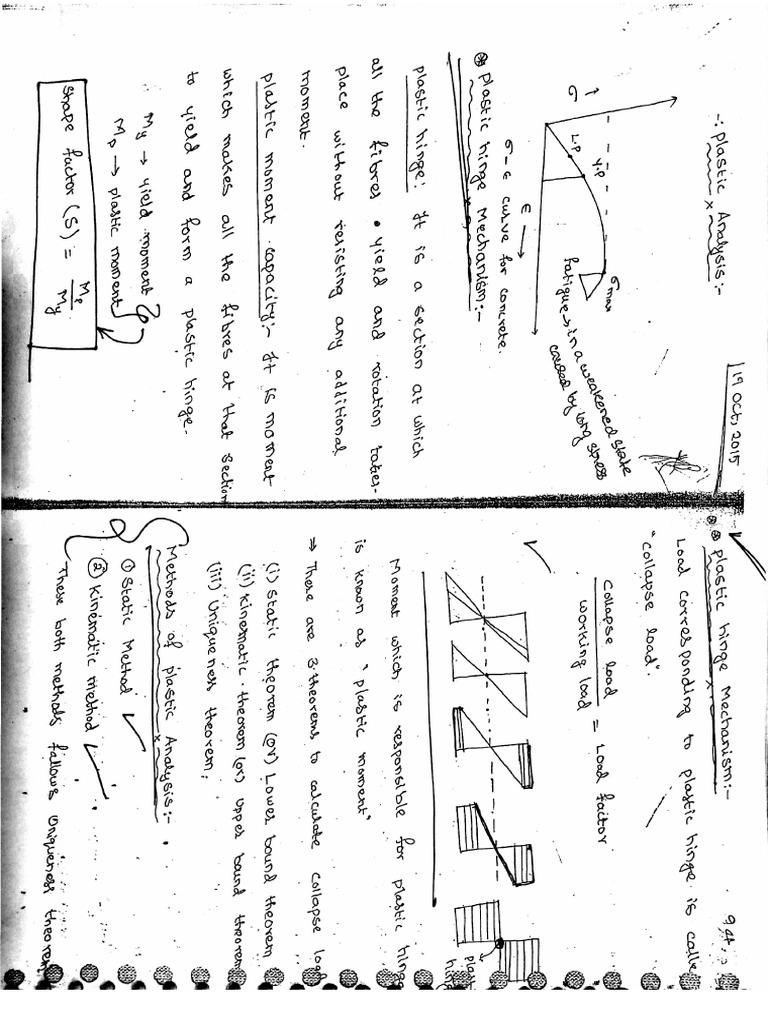 19 Oct, 2015
-: Plastic Analysis:-
σ
L.P
Y.P
σmax
ε →
fatigue → in a weakened state
caused by long stress
σ-ε curve for concrete.
Plastic hinge Mechanism:-
plastic hinge: It is a section at which
all the fibres yield and rotation takes-
place without resisting any additional
moment.
plastic moment capacity:- It is moment
which makes all the fibres at that section
to yield and form a plastic hinge.
My → yield moment
Mp → plastic moment
Shape factor (S) = Mp / My
plastic hinge Mechanism:-
Load corresponding to plastic hinge is calle
"collapse load".
Collapse load / working load = Load factor
plast
hin
Moment which is responsible for plastic hing
is known as "plastic moment"
⇒ There are 3-theorems to calculate collapse loa
(i) Static theorem (or) Lower bound theorem
(ii) Kinematic theorem (or) upper bound theorem
(iii) Uniqueness theorem.
Methods of plastic Analysis:-
① Static Method
② Kinematic method
These both methods follows Uniqueness theorem